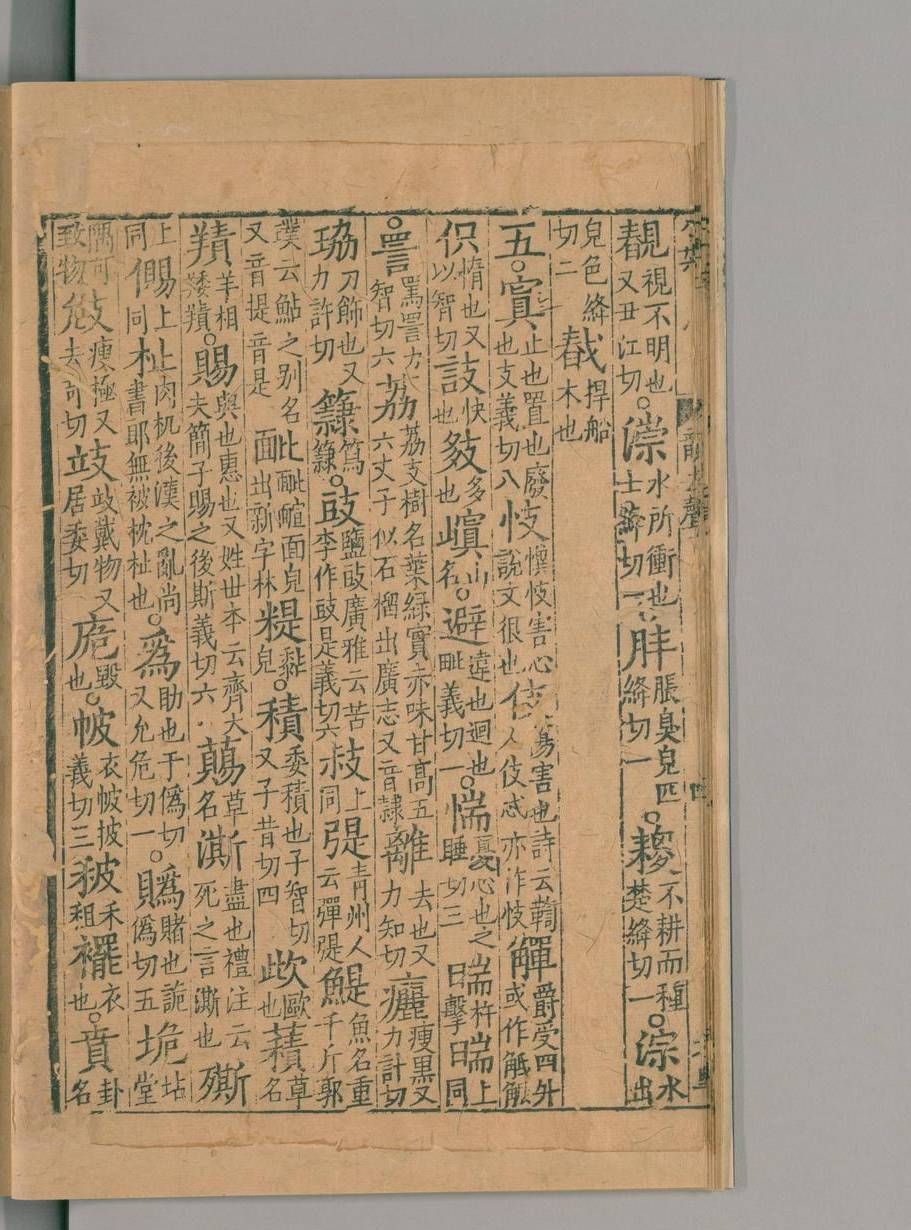 覩視不明也又丑江切○漴水所衝也士絳切一○胖脹臭皃匹絳切一○䅎不耕而種楚絳切一○淙水出
皃色絳切二𢧵捍船木也
五○寘止也置也廢也支義切八忮懻忮害心說文很也伎傷害也詩云鞫人伎忒亦作忮觶爵受四升或作觗觛
伿惰也又以智切䛊快也䝸多也㠉山名○避違也迴也毗義切一○惴憂心也之睡切三㟨杵𣆀上同
○詈罵詈力智切六荔荔支樹名葉綠實赤味甘高五六丈子似石榴出廣志又音隷離去也又力知切㿖瘦黑又力計切
珕刀飾也又力許切䉫篤䉫○豉鹽豉廣雅云苦李作豉是義切六𢻃上同㔭青州人云彈㔭鯷魚名重千斤郭
璞云鮎之别名又音提音是𩈡䩄面皃出新字林䊓黏皃○積委積也子智切又子昔切四㰣歐也䕉草名
羵羊相矮羵○賜與也惠也又姓世本云齊大夫簡子賜之後斯義切六䔮草名澌盡也禮注云死之言澌也㒋
上同㑥上同杫上肉机後漢之亂尚書郎無被枕杫也○為助也于偽切又允危切一○賹賭也詭偽切五垝堂坫
隅可致物攰瘦極又去奇切𢻃𢻃戴物又居委切㢈毀也○帔衣帔披義切三秛禾租䙛衣也○賁卦名